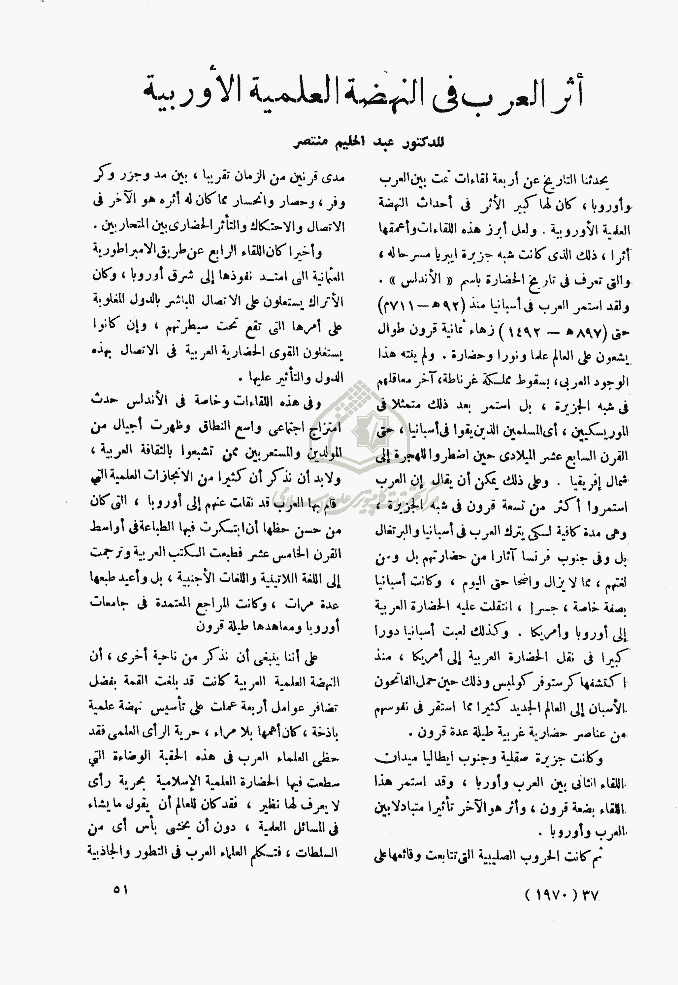 أثر العرب فى النهضة العلمية الأوربية
للدكتور عبد الحليم منتصر
يحدثنا التاريخ عن أربعة لقاءات تمت بين العرب
وأوروبا ، كان لها كبير الأثر فى أحداث النهضة
العلمية الأوروبية . ولعل أبرز هذه اللقاءات وأعمقها
أثرا ، ذلك الذى كانت شبه جزيرة ايبريا مسرحا له ،
والتى تعرف فى تاريخ الحضارة باسم « الأندلس » .
ولقد استمر العرب فى أسبانيا منذ (٩٢ﻫ – ٧١١م)
حتى (٨٩٧ﻫ – ١٤٩٢) زهاء ثمانية قرون طوال
يشعون على العالم علما ونورا وحضارة . ولم ينته هذا
الوجود العربى، بسقوط مملكة غرناطة، آخر معاقلهم
فى شبه الجزيرة ، بل استمر بعد ذلك متمثلا فى
الموريسكيين ، أى المسلمين الذين بقوا فى أسبانيا ، حتى
القرن السابع عشر الميلادى حين اضطروا للهجرة إلى
شمال إفريقيا . وعلى ذلك يمكن أن يقال إن العرب
استمروا أكثر من تسعة قرون فى شبه الجزيرة ،
وهى مدة كافية لكى يترك العرب فى أسبانيا والبرتغال
بل وفى جنوب فرنسا آثارا من حضارتهم بل ومن
لغتهم ، مما لا يزال واضحا حتى اليوم ، وكانت أسبانيا
بصفة خاصة ، جسرا ، انتقلت عليه الحضارة العربية
إلى أوروبا وأمريكا . وكذلك لعبت أسبانيا دورا
كبيرا فى نقل الحضارة العربية إلى أمريكا ، منذ
اكتشفها كرستوفر كولمبس وذلك حين حمل الفاتحون
الأسبان إلى العالم الجديد كثيرا مما استقر فى نفوسهم
من عناصر حضارية غربية طيلة عدة قرون .
وكانت جزيرة صقلية وجنوب ايطاليا ميدات
اللقاء الثانى بين العرب وأوربا ، وقد استمر هذا
اللقاء بضعة قرون ، وأثر هو الآخر تأثيرا متبادلا بين
العرب وأوروبا .
ثم كانت الحروب الصليبية التى تتابعت وقائعها على
مدى قرنين من الزمان تقريبا ، بين مد وجزر وكر
وفر ، وحصار وانحسار مما كان له أثره هو الآخر فى
الاتصال والاحتكاك والتأثر الحضارى بين المتحاربين .
وأخيرا كان اللقاء الرابع عن طريق الامبراطورية
العثمانية التى امتد نفوذها إلى شرق أوروبا ، وكان
الأتراك يستعلون على الاتصال المباشر بالدول المغلوبة
على أمرها التى تقع تحت سيطرتهم ، وإن كانوا
يستغلون القوى الحضارية العربية فى الاتصال بهذه
الدول والتأثير عليها .
وفى هذه اللقاءات وخاصة فى الأندلس حدث
امتزاج اجتماعى واسع النطاق وظهرت أجيال من
المولدين والمستعربين ممن تشبعوا بالثقافة العربية ،
ولابد أن نذكر أن كثيرا من الانجازات العلمية التي
قام بها العرب قد نقلت عنهم إلى أوروبا ، التى كان
من حسن حظها أن ابتسكرت فيها الطباعة فى أواسط
القرن الخامس عشر فطبعت الكتب العربية وترجمت
إلى اللغة اللاتينية واللغات الأجنبية ، بل وأعيد طبعها
عدة مرات ، وكانت المراجع المعتمدة فى جامعات
أوروبا ومعاهدها طيلة قرون
على أننا ينبغى أن نذكر من ناحية أخرى ، أن
النهضة العلمية العربية كانت قد بلغت القمة بفضل
تضافر عوامل أربعة عملت على تأسيس نهضة علمية
باذخة ، كان أهمها بلا مراء ، حرية الرأى العلمى فقد
حظى العلماء العرب فى هذه الحقبة الوضاءة التي
سطعت فيها الحضارة العلمية الإسلامية بحرية رأى
لا يعرف لها نظير ، فقد كان للعالم أن يقول ما يشاء
فى المسائل العلمية ، دون أن يخشى بأس أى من
السلطات ، فتكلم العلماء العرب فى التطور والجاذبية
٣٧ ( ١٩٧٠ )
٥١